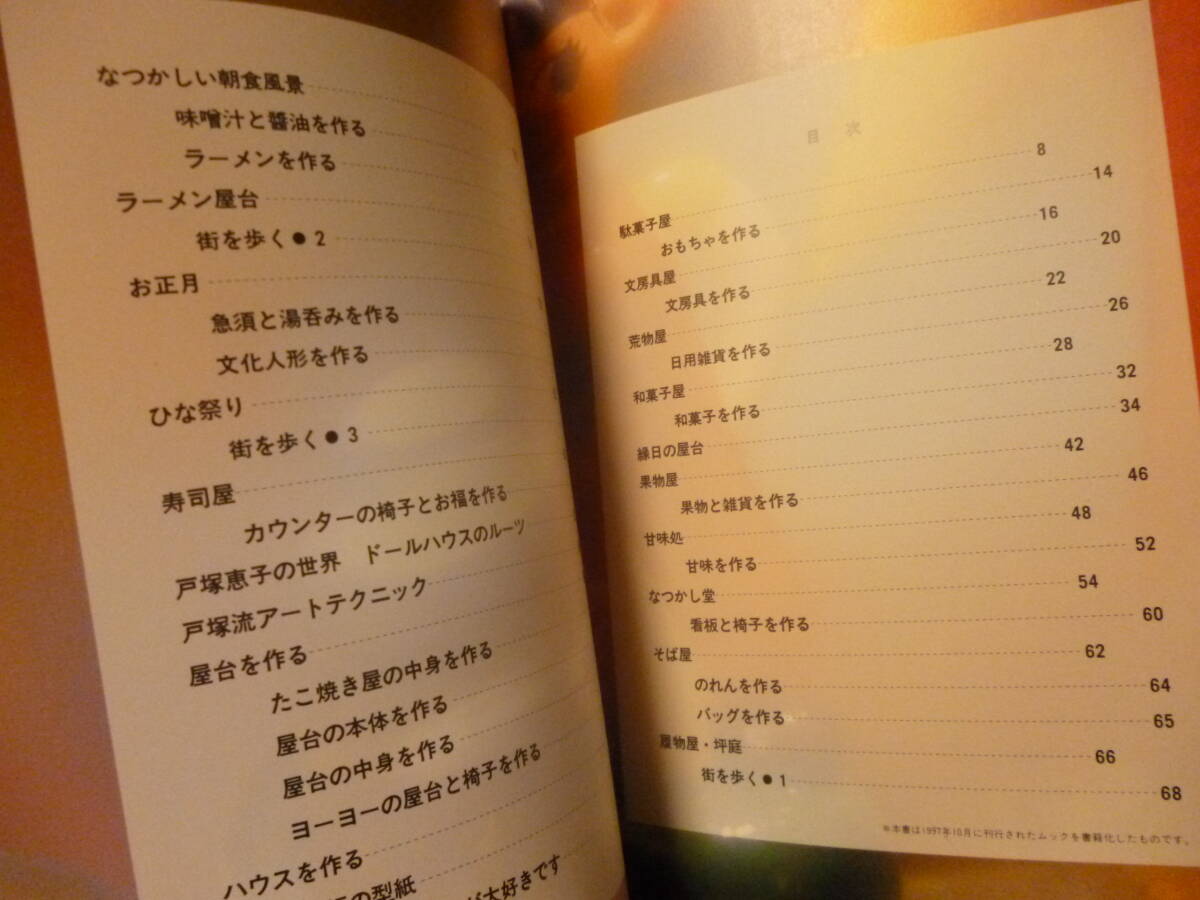 目次
駄菓子屋 8
おもちゃを作る 14
文房具屋 16
文房具を作る 20
荒物屋 22
日用雑貨を作る 26
和菓子屋 28
和菓子を作る 32
縁日の屋台 34
果物屋 42
果物と雑貨を作る 46
甘味処 48
甘味を作る 52
なつかし堂 54
看板と椅子を作る 60
そば屋 62
のれんを作る 64
バッグを作る 65
履物屋・坪庭 66
街を歩く●1 68
※本書は1997年10月に刊行されたムックを書籍化したものです。
なつかしい朝食風景
味噌汁と醬油を作る
ラーメンを作る
ラーメン屋台
街を歩く●2
お正月
急須と湯呑みを作る
文化人形を作る
ひな祭り
街を歩く●3
寿司屋
カウンターの椅子とお福を作る
戸塚恵子の世界 ドールハウスのルーツ
戸塚流アートテクニック
屋台を作る
たこ焼き屋の中身を作る
屋台の本体を作る
屋台の中身を作る
ヨーヨーの屋台と椅子を作る
ハウスを作る
の型紙
が大好きです